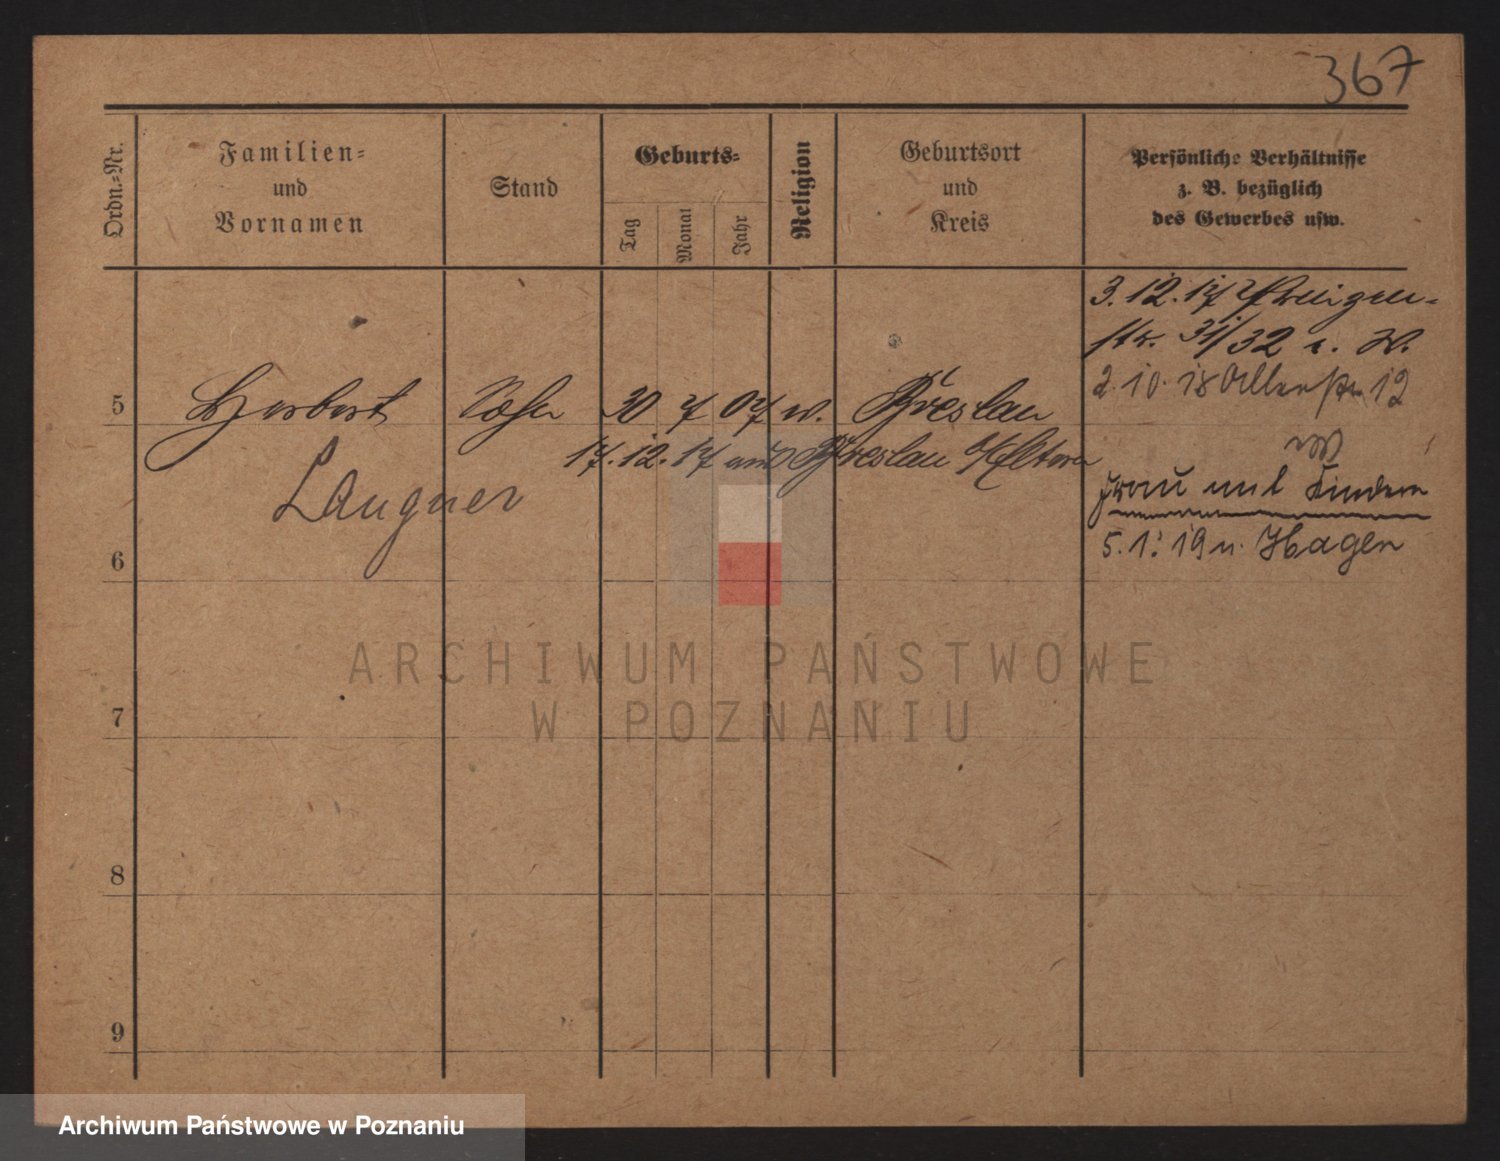 367
Ordn.-Nr.
Familien-
und
Vornamen
Stand
Geburts-
Tag
Monat
Jahr
Religion
Geburtsort
und
Kreis
Persönliche Verhältnisse
z. B. bezüglich
des Gewerbes usw.
3.12.17
str. 31/32 W.
2.10.18 12
5 Herbert Sohn 30 7 07 Breslau
17.12.17 Breslau
Langner
Frau und Kindern
5.1.19 n. Hagen
6
7
8
9
ARCHIWUM PAŃSTWOWE
W POZNANIU
Archiwum Państwowe w Poznaniu